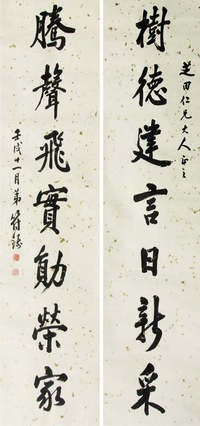 樹德建言日新采
芝田仁兄大人正之
騰聲飛實勛榮家
壬戌十一月弟